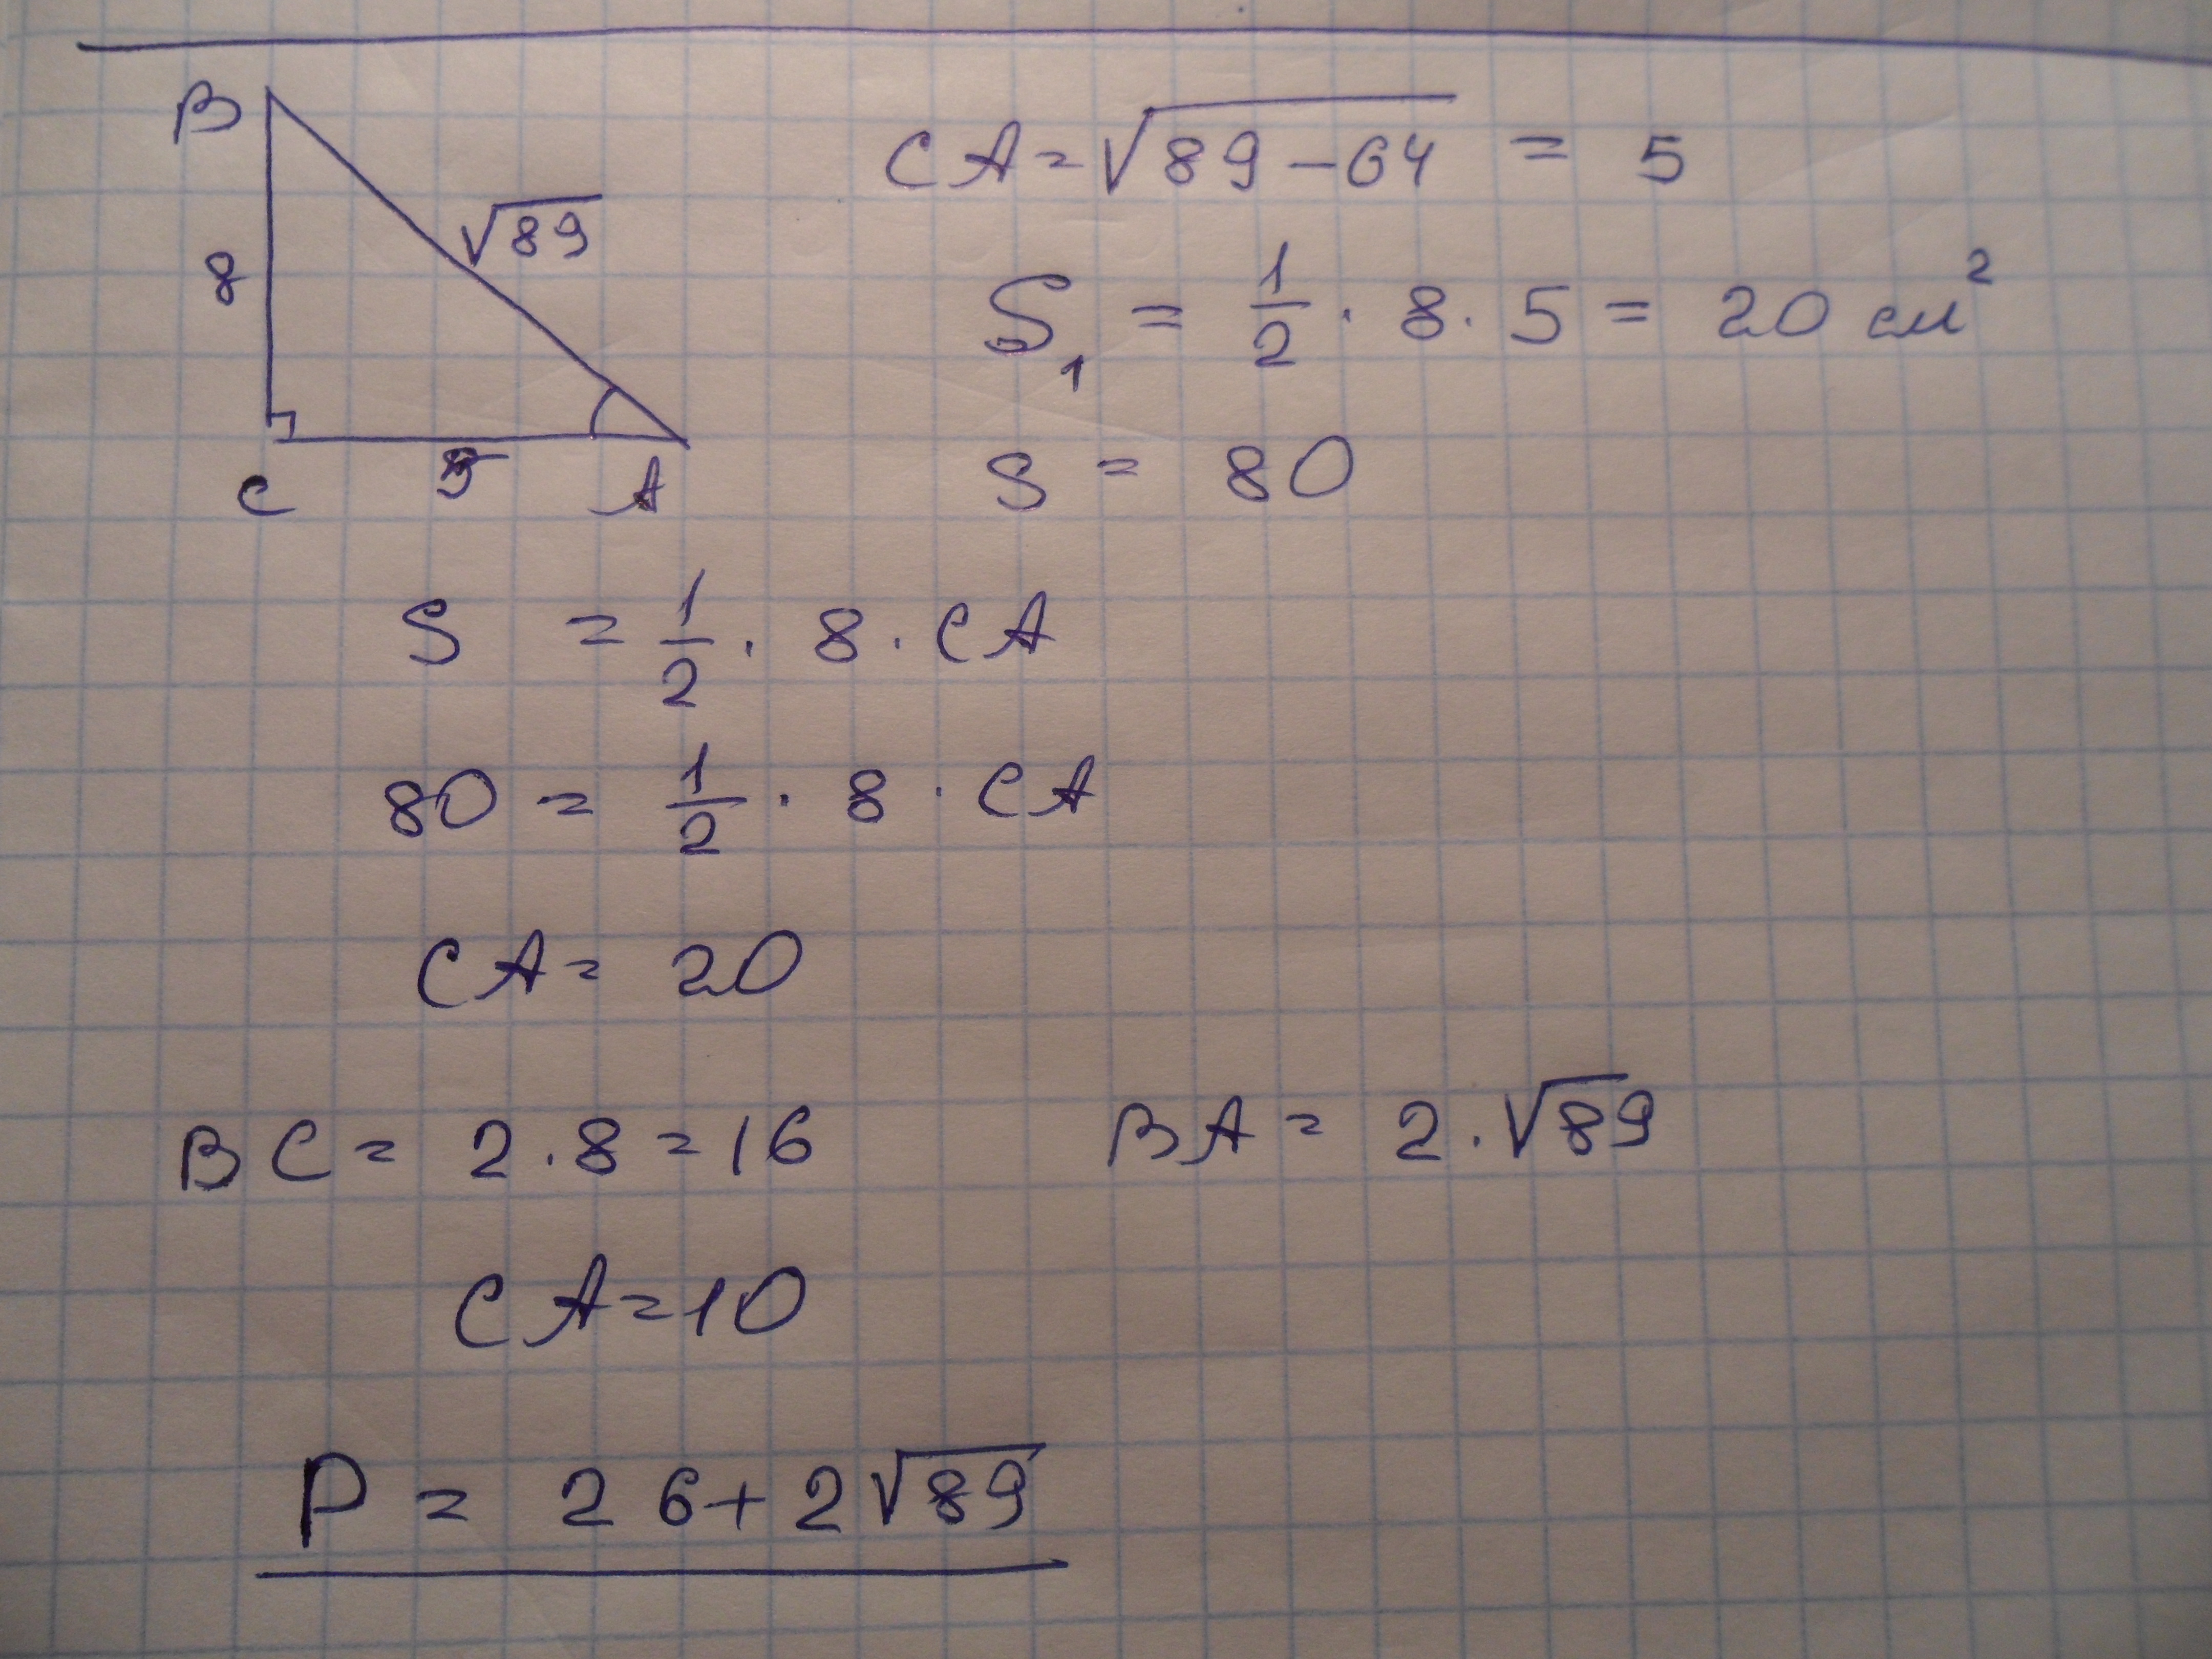 B
CA = √89 - 64 = 5
√89
8
S₁ = 1/2 · 8 · 5 = 20 см²
C 5 A
S = 80
S = 1/2 · 8 · CA
80 = 1/2 · 8 · CA
CA = 20
BC = 2 · 8 = 16
BA = 2 · √89
CA = 10
P = 26 + 2√89